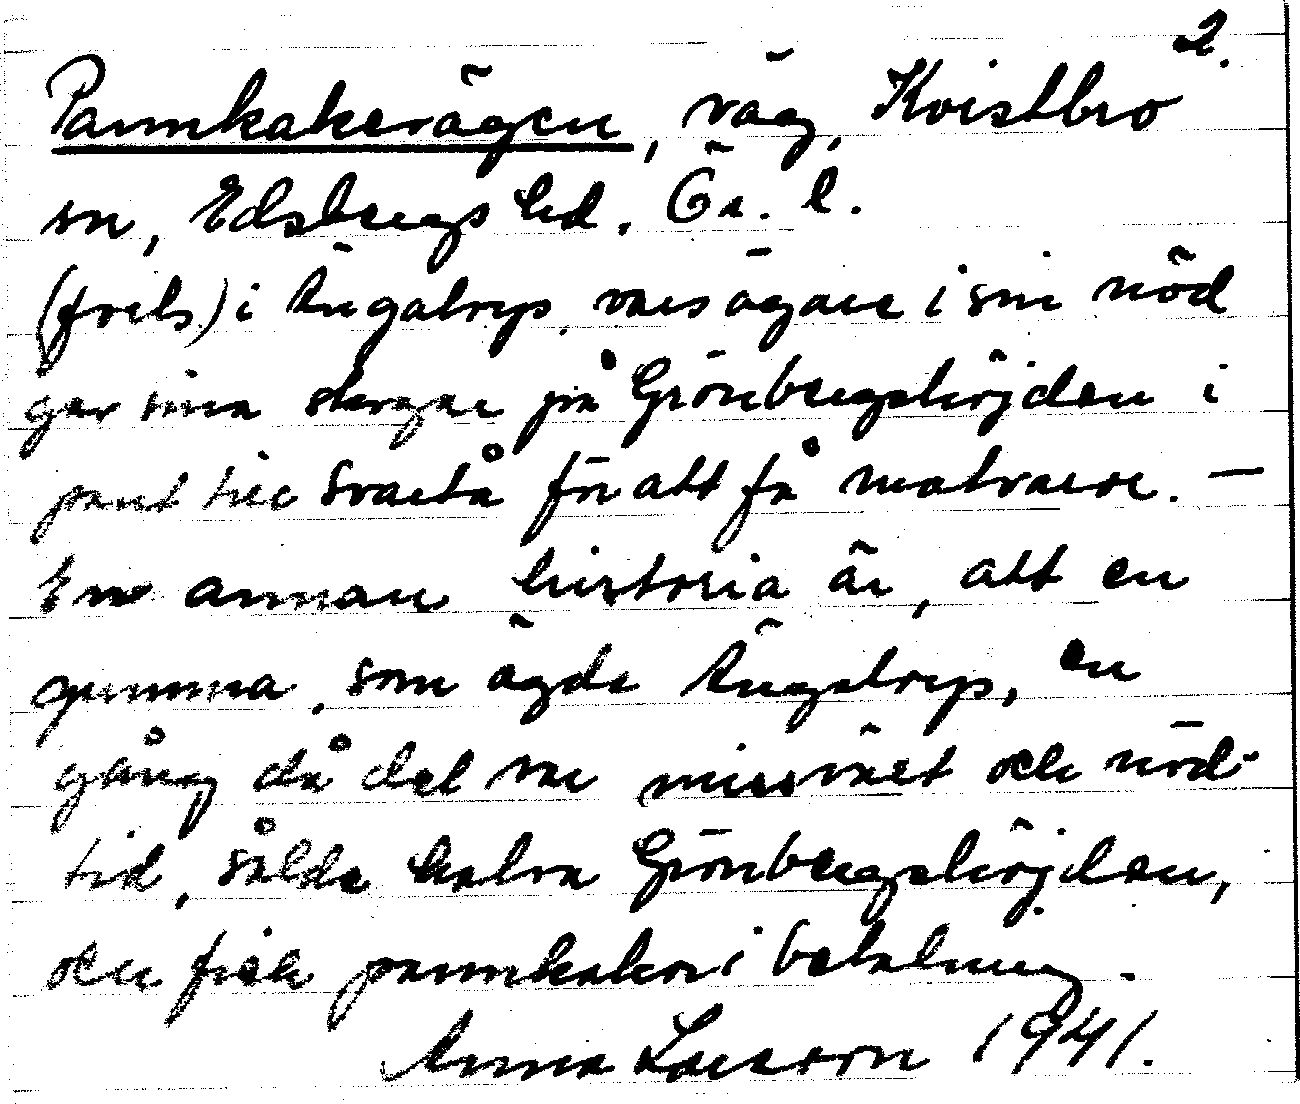 2.
Pannkakevägen, väg, Kvistbro
sn, Edsbergs hd. Ör. l.
(forts) i Ängatorp, vars ägare i sin nöd
gav sina skogar på Grönbergshöjden i
pant till Svartå för att få matvaror. —
En annan historia är, att en
gumma, som ägde Ängatorp, en
gång då det var missväxt och nöd-
tid, sålde halva Grönbergshöjden,
och fick pannkakor i betalning.
Anna Larsson 1941.